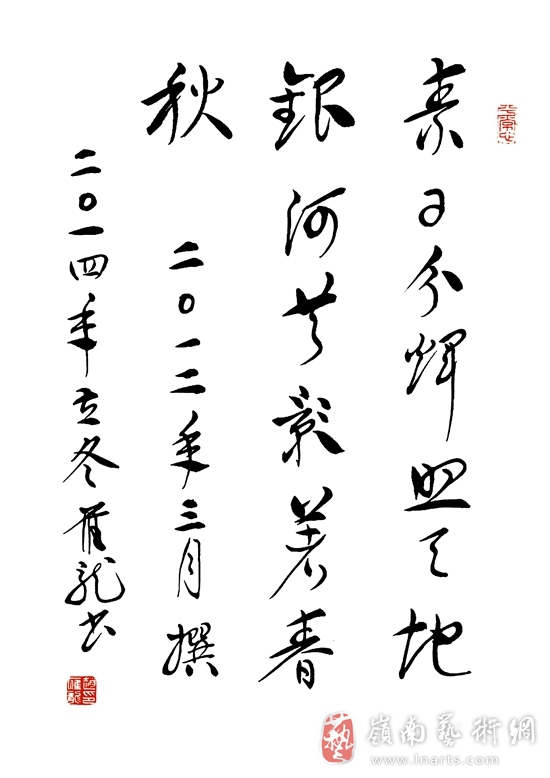 素月分煇照天地
銀河共影著春
秋
二〇一二年三月撰
二〇一四年立冬龍书
藝
嶺南藝術網
www.lnarts.com